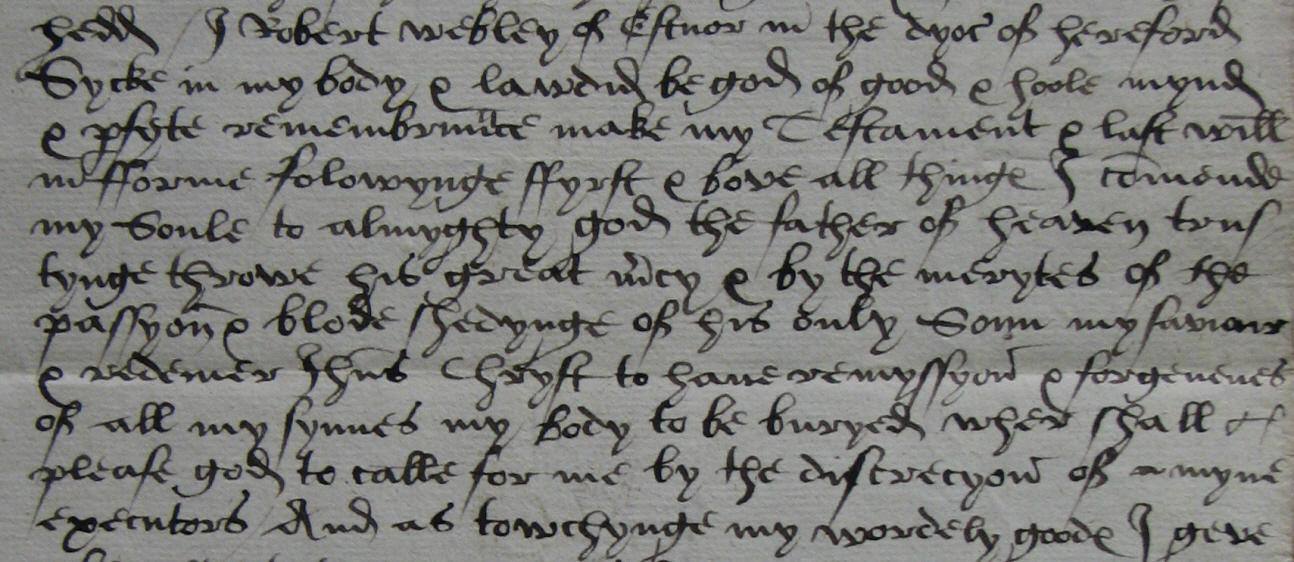 hedd / I Robert webley of Estnor in the dyoc of hereford
Sycke in my body & lawdid be god of good & hoole mynd
& pfyte remembrance make my Testament & last will
in fforme folowynge ffyrst & bove all thinge I comende
my Soule to almyghty god the father of heaven trus
tynge throwe his great mcy & by the merytes of the
passyon & blode shedynge of his only Sonn my saviour
& redemer Jhus Chryst to have remyssyon & forgevenes
of all my synnes my body to be buryed wher shall
please god to calle for me by the discrecyon of myne
executors And as towchynge my wordely goode I geve